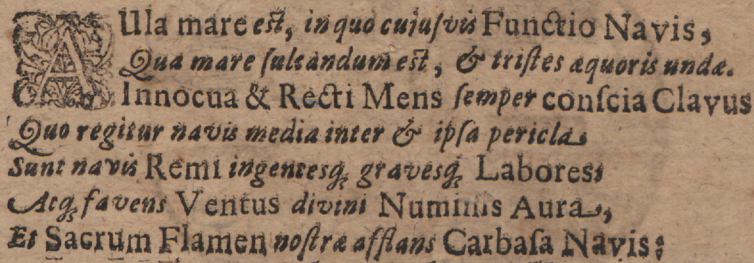 AUla mare est, in quo cujusvis Functio Navis,
Qua mare sulcandum est, & tristes æquoris undæ.
Innocua & Recti Mens semper conscia Clavus
Quo regitur navis media inter & ipsa pericla.
Sunt navis Remi ingentesq; gravesq; Labores;
Atq; favens Ventus divini Numinis Aura,
Et Sacrum Flamen nostræ afflans Carbasa Navis: